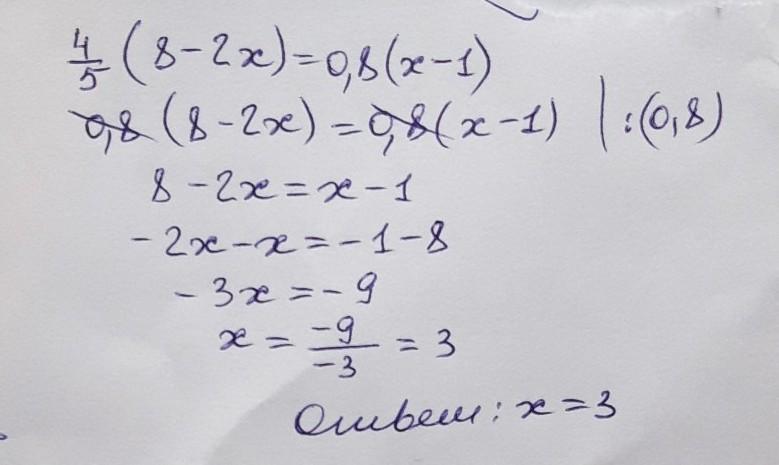 4/5 (8-2x)=0,8(x-1)
0,8 (8-2x)=0,8(x-1) | :(0,8)
8-2x=x-1
-2x-x=-1-8
-3x=-9
x = -9/-3 = 3
Ответ: x=3